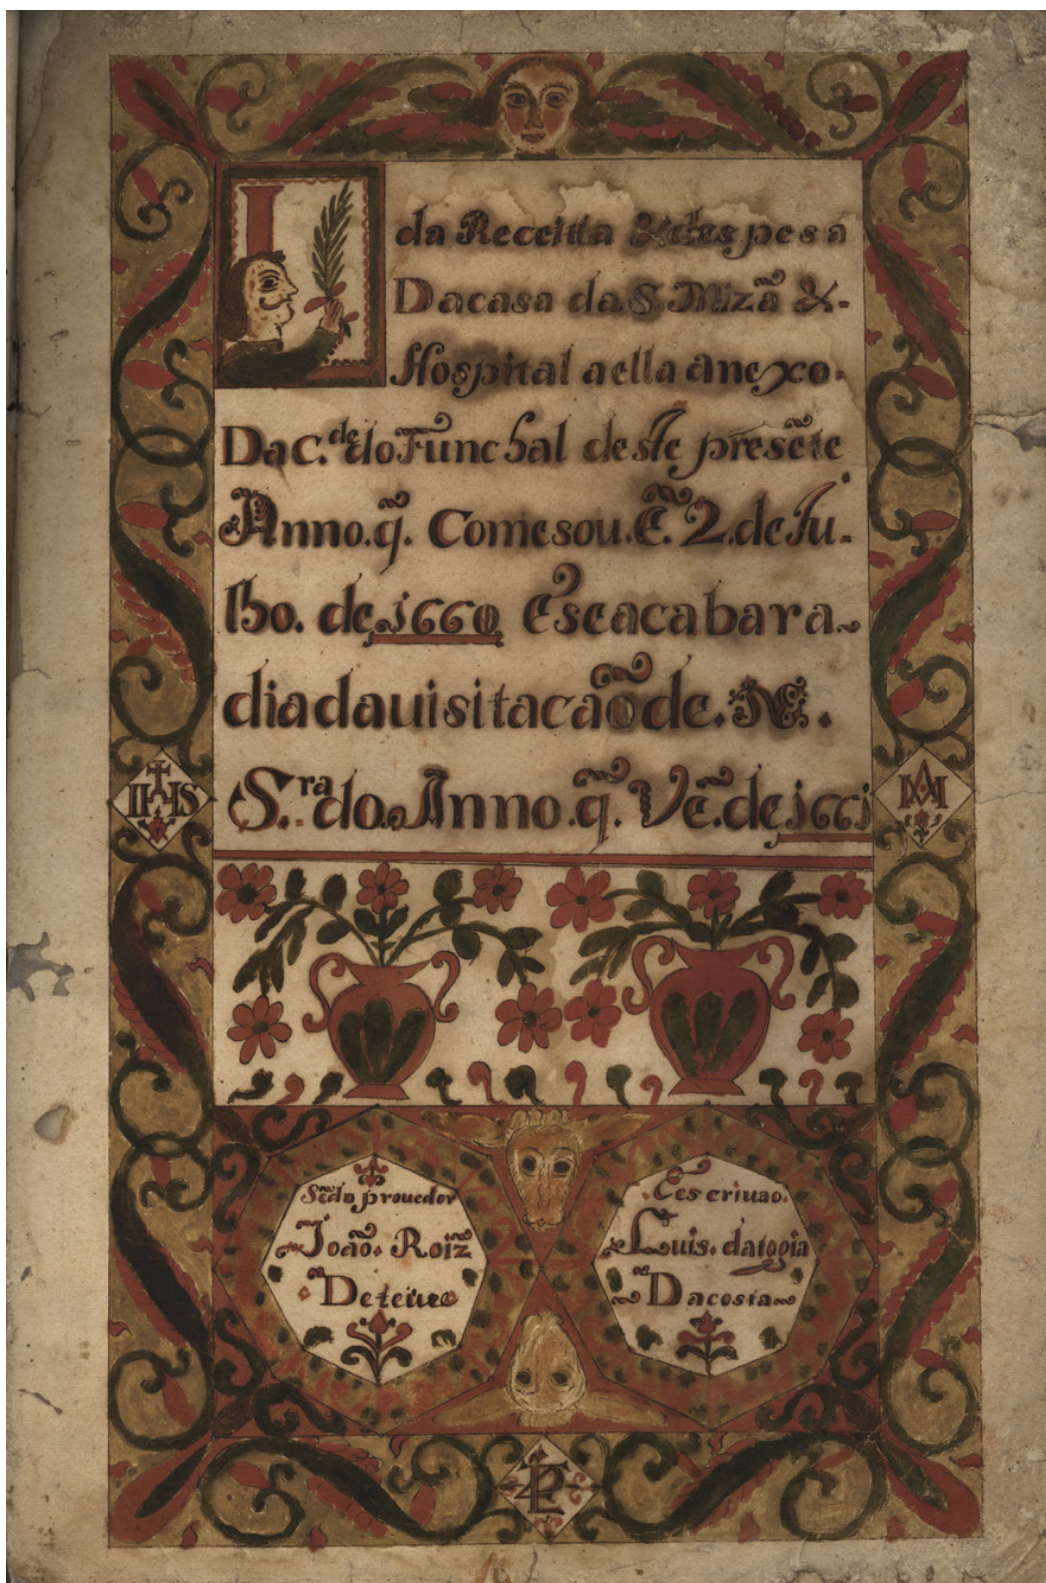 L
da Receitta & despesa
Dacasa da S. Mizã &
Hospital aella anexo.
Dac.de do Funchal deste presẽte
Anno.q̃. Comesou.Ẽ.2.de Ju-
lho. de 1660 Eseacabara
diadauisitacaõ de. N.
S.ra do. Anno.q̃. Vẽ.de 1661
IHS
MA
Sẽdo prouedor
Joaõ. Roiz
De teiue
Eescriuao.
Luis. datogia
Dacosta